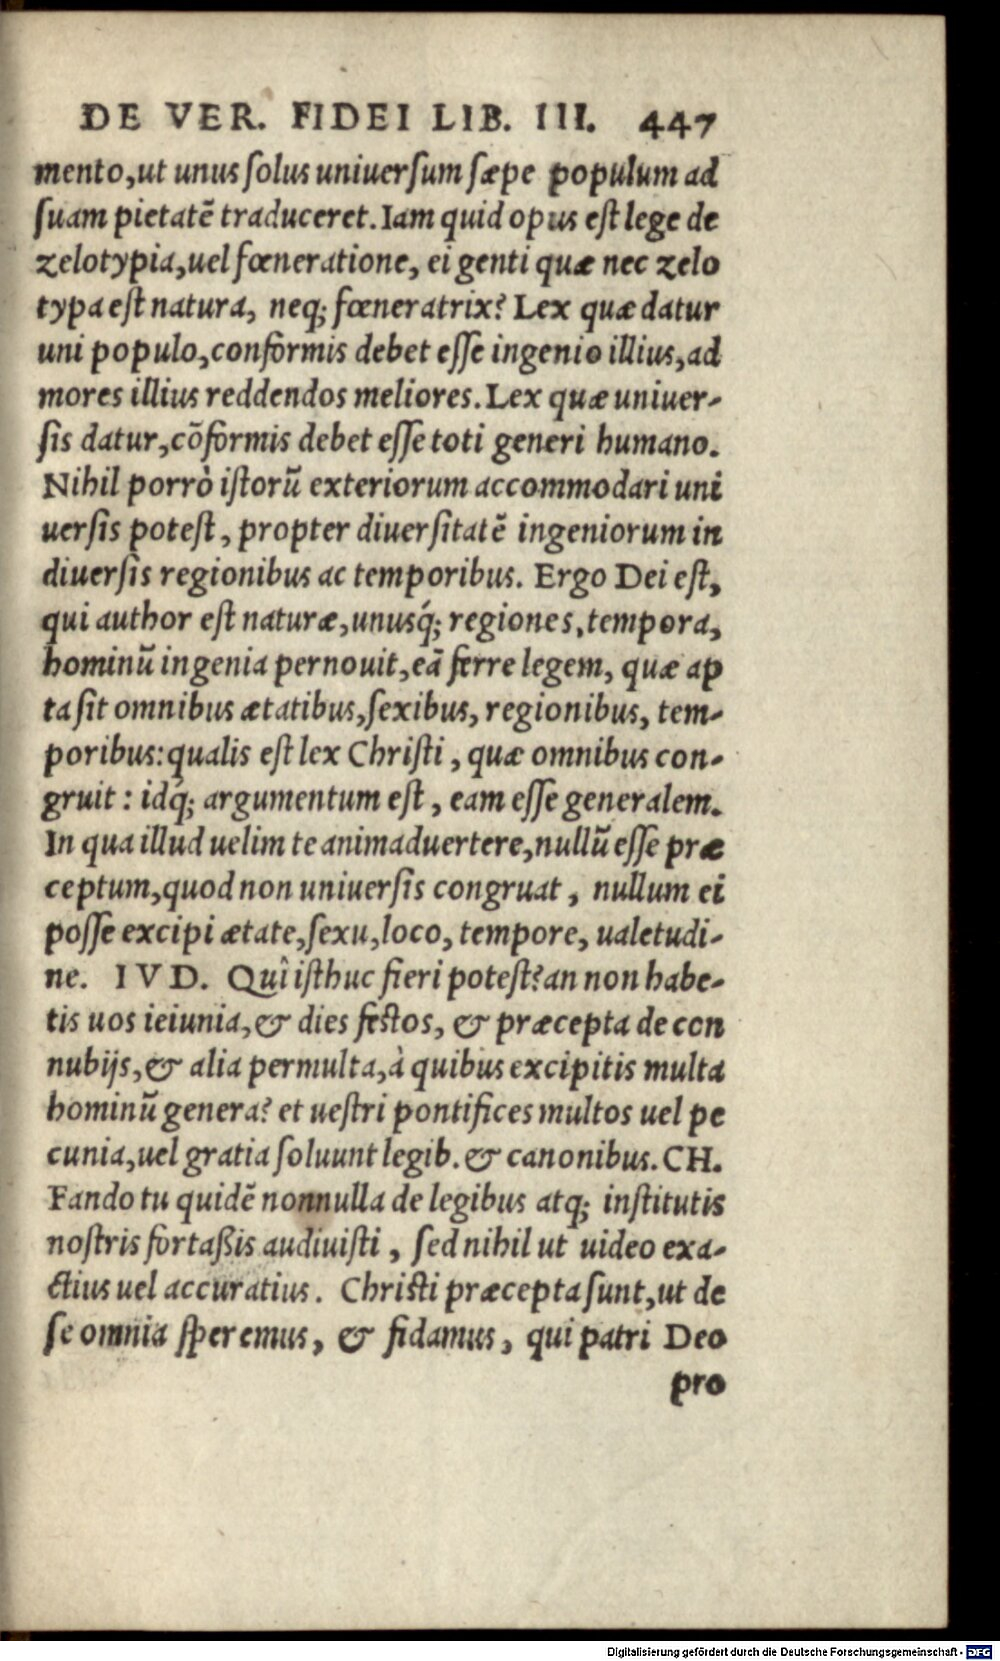 DE VER. FIDEI LIB. III. 447
mento,ut unus ſolus uniuerſum ſæpe populum ad
ſuam pietatē traduceret. Iam quid opus eſt lege de
zelotypia,uel fœneratione, ei genti quæ nec zelo
typa eſt natura, neq; fœneratrix? Lex quæ datur
uni populo,conformis debet eſſe ingenio illius,ad
mores illius reddendos meliores. Lex quæ uniuer-
ſis datur,cōformis debet eſſe toti generi humano.
Nihil porrò iſtorū exteriorum accommodari uni
uerſis poteſt, propter diuerſitatē ingeniorum in
diuerſis regionibus ac temporibus. Ergo Dei eſt,
qui author eſt naturæ,unusq́; regiones,tempora,
hominū ingenia pernouit,eā ferre legem, quæ ap
ta ſit omnibus ætatibus,ſexibus, regionibus, tem-
poribus:qualis eſt lex Chriſti, quæ omnibus con-
gruit: idq́; argumentum eſt, eam eſſe generalem.
In qua illud uelim te animaduertere,nullū eſſe præ
ceptum,quod non uniuerſis congruat, nullum ei
poſſe excipi ætate,ſexu,loco, tempore, ualetudi-
ne. IVD. Quî iſthuc fieri poteſt?an non habe-
tis uos ieiunia,& dies feſtos, & præcepta de con
nubijs,& alia permulta,à quibus excipitis multa
hominū genera? et ueſtri pontifices multos uel pe
cunia,uel gratia ſoluunt legib. & canonibus. CH.
Fando tu quidē nonnulla de legibus atq; inſtitutis
noſtris fortaßis audiuiſti, ſed nihil ut uideo exa-
ctius uel accuratius. Chriſti præcepta ſunt,ut de
ſe omnia ſperemus, & fidamus, qui patri Deo
pro
Digitalisierung gefördert durch die Deutsche Forschungsgemeinschaft - DFG